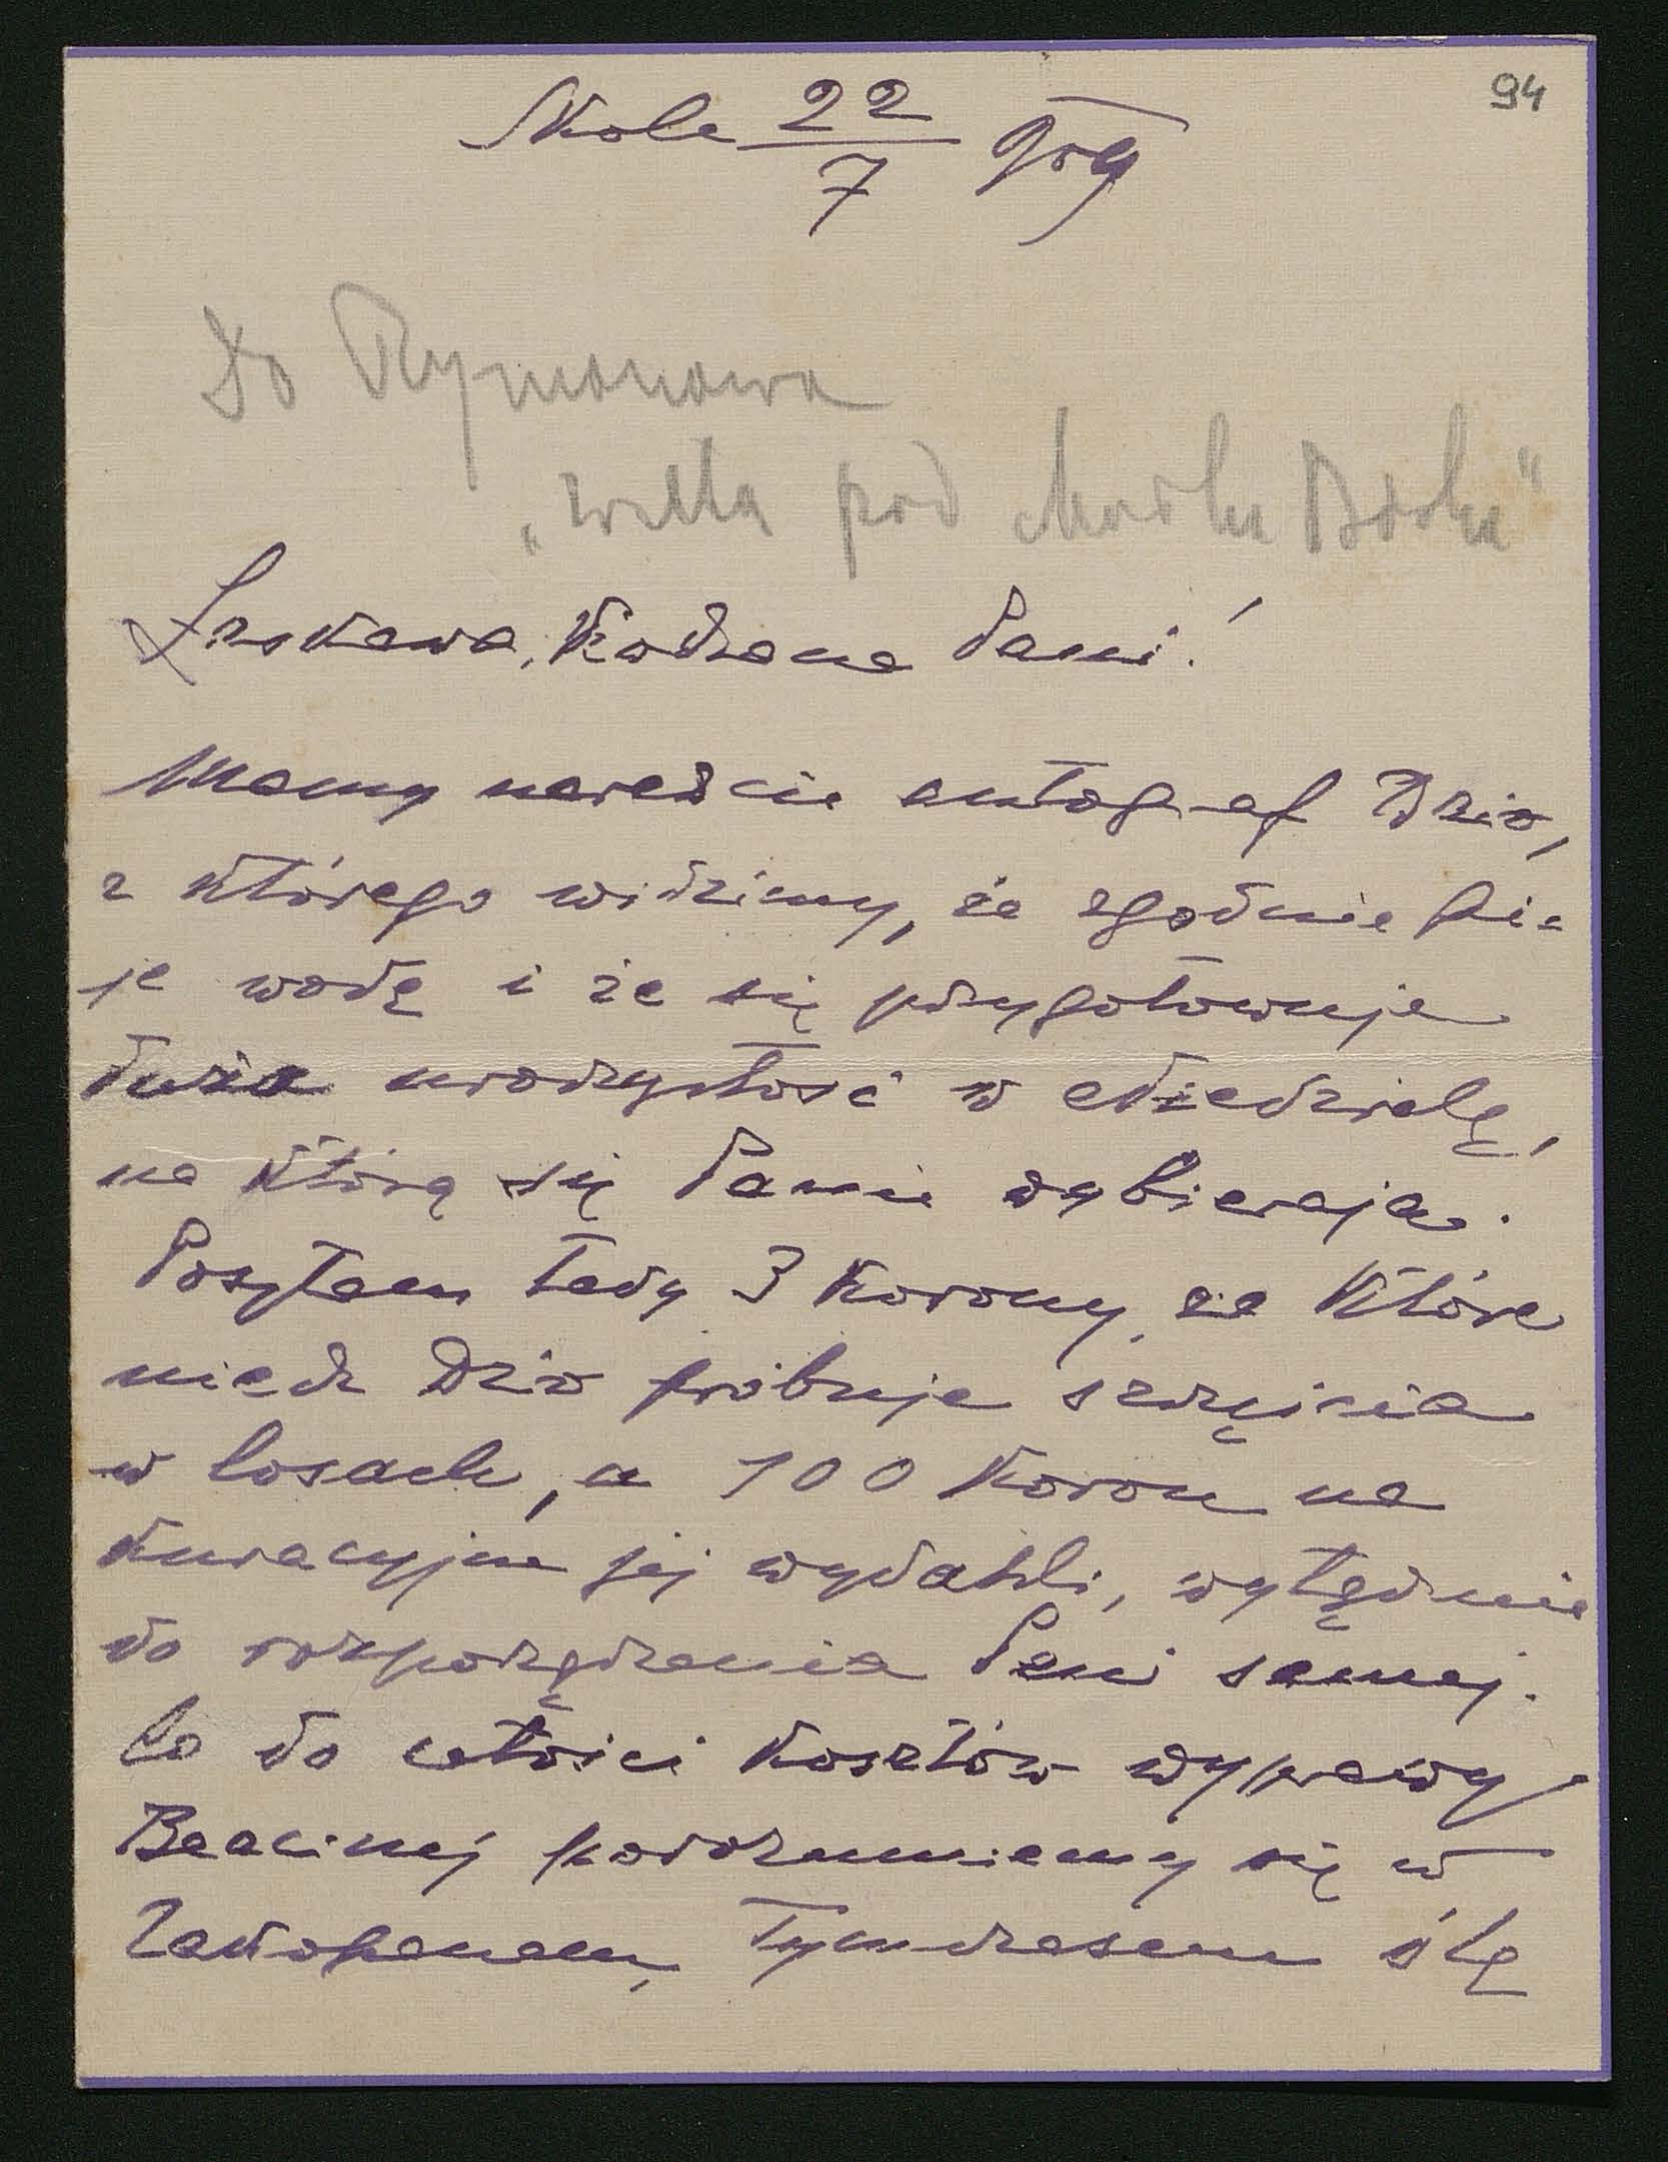 94
Skole 22/7 909
Do Rymanowa
„willa pod Matką Boską"
Łaskawa, Kochana Pani!
Mamy nareszcie autograf Dzio,
z którego widzimy, że zgodnie pi=
je wodę i że się przygotowuje
duża uroczystość w Niedzielę,
na którą się Panie wybierają.
Posyłam tedy 3 korony, za które
niech Dzio próbuje szczęścia
w losach, a 100 koron na
kuracyjne jej wydatki, wyłącznie
do rozporządzenia Pani samej.
Co do całości kosztów wyprawy
porozumiemy się w
Zakopanem, Tymczasem ślę